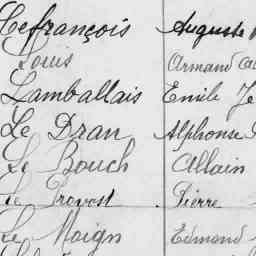 Lefrançois Auguste
Louis Armand
Lamballais Emile
Le Dran Alphonse
Le Bouch Allain
Le Provost Pierre
Le Moign Edmond